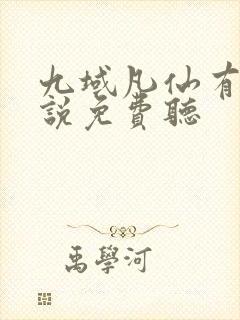 九域凡仙有
說免費聽
禹學河